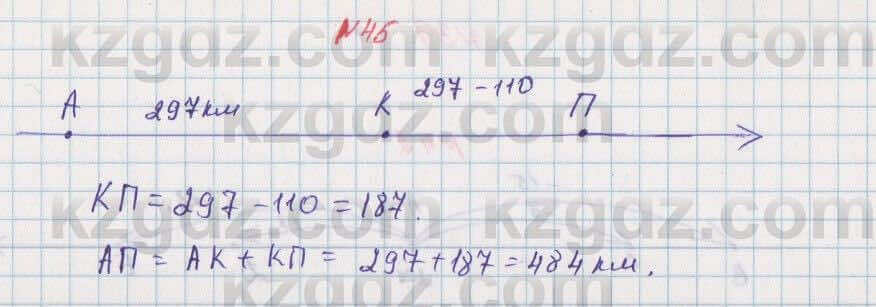 N45
kzgdz.com kzgdz.com
297 - 110
А 297 км К П
kzgdz.com
КП = 297 - 110 = 187.
kzgdz.com kzgdz.com
АП = АК + КП = 297 + 187 = 484 км.
kzgdz.com